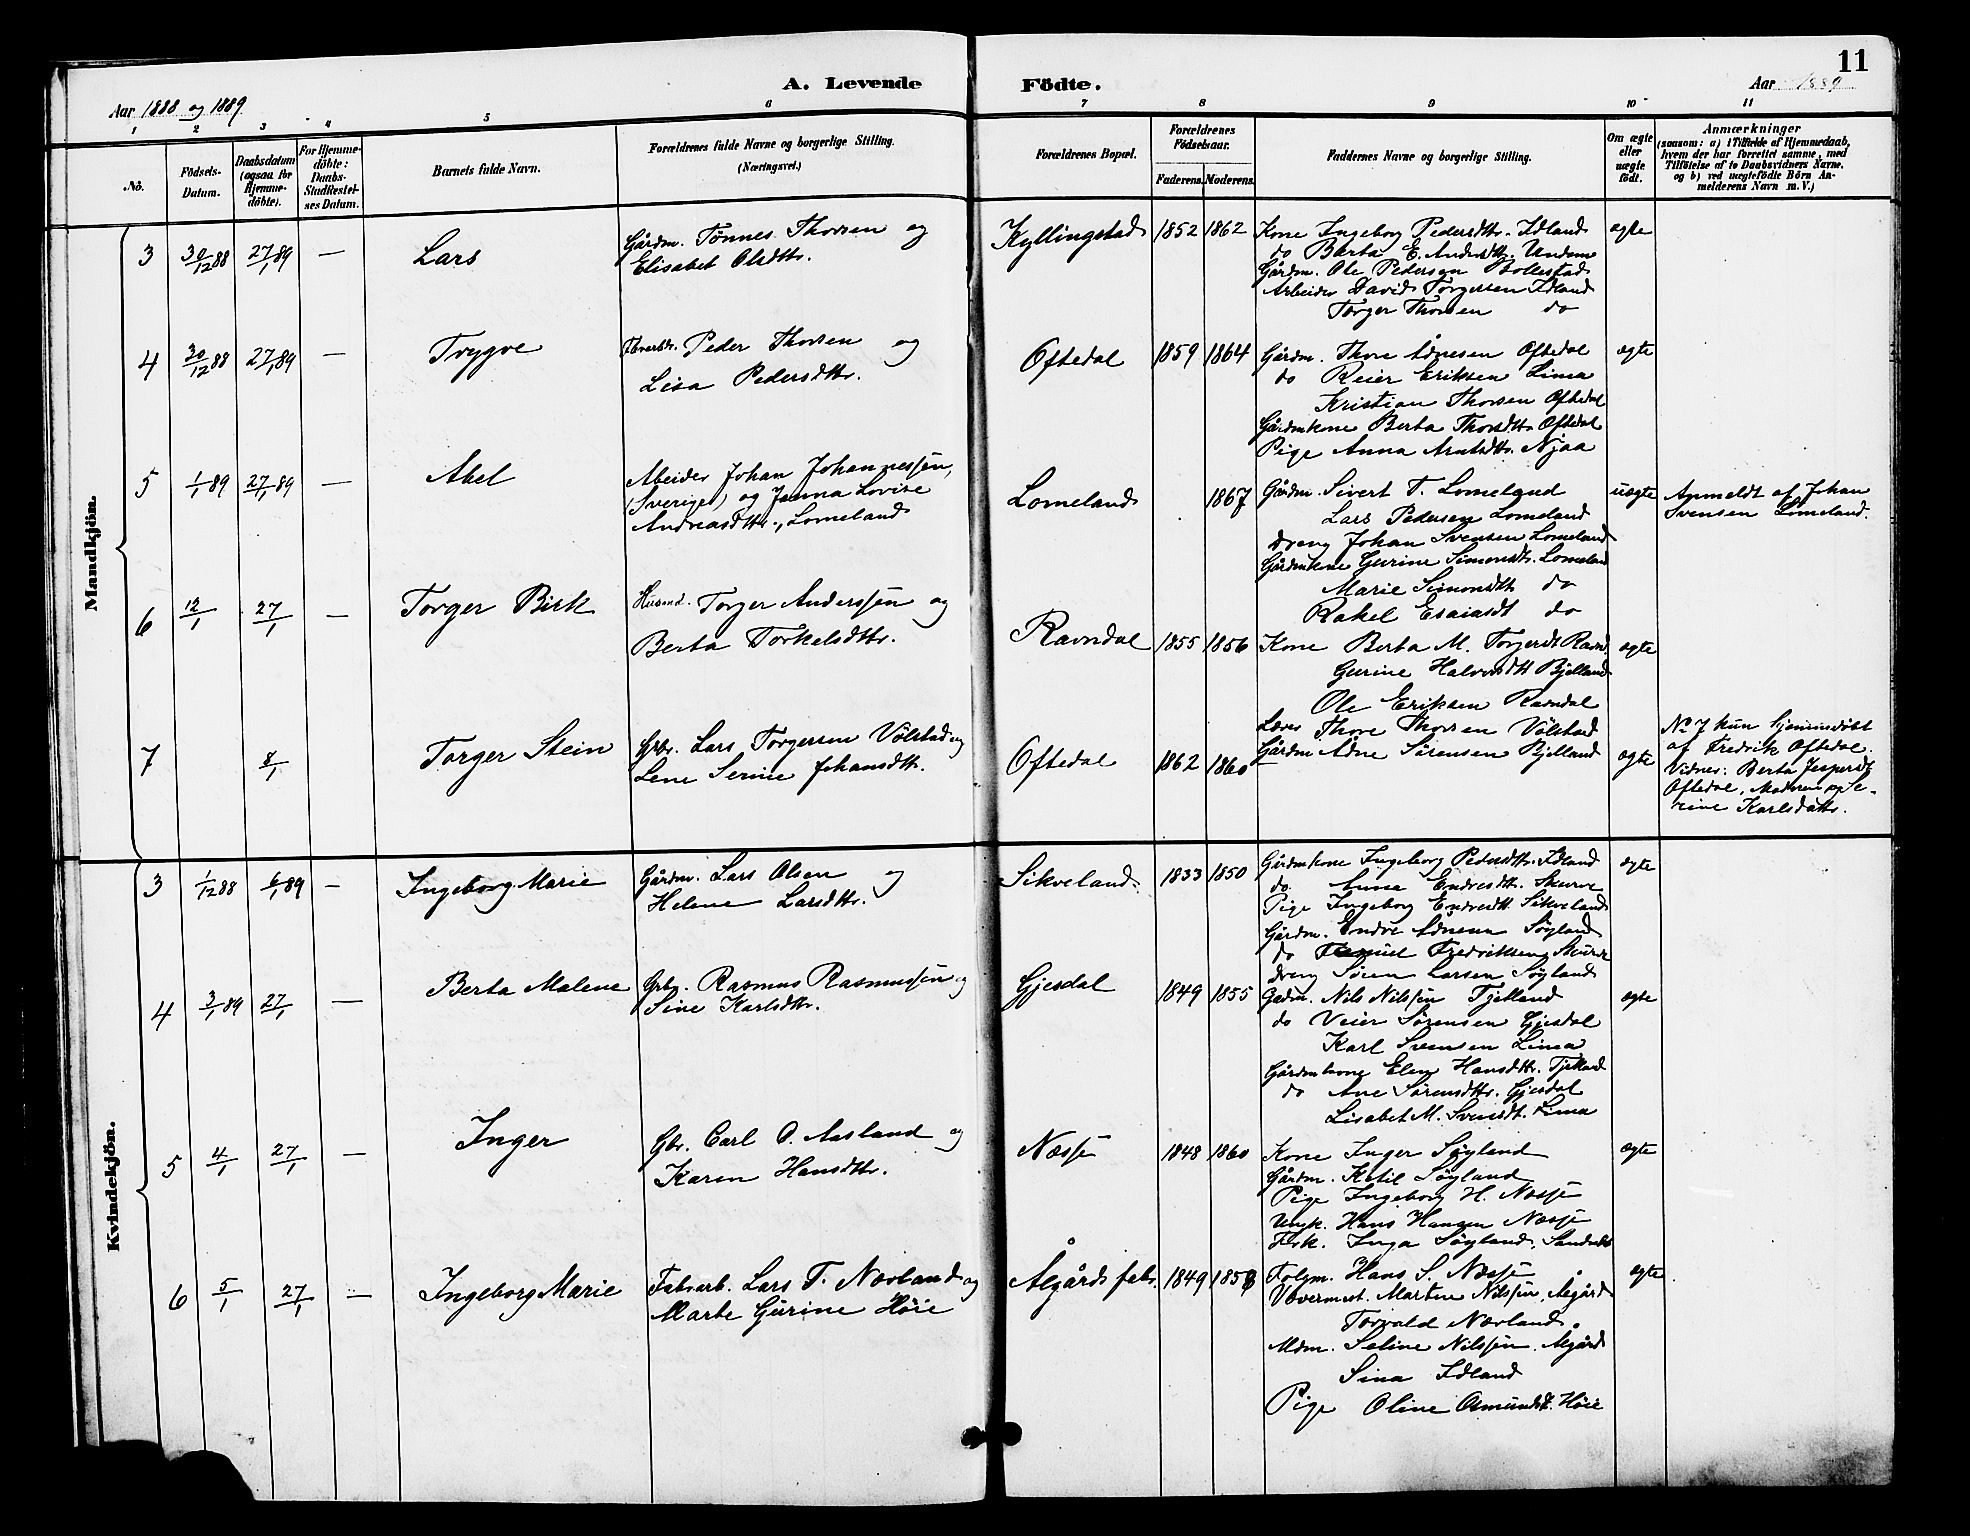 11
A. Levende Födte.
Aar 1888 og 1889
Aar 1889
1 2 3 4 5 6 7 8 9 10 11
No.
Födsels-
Datum.
Daabsdatum
(ogsaa for
Hjemme-
döbte).
For Hjemme-
döbte:
Daabs-
Stadfæstel-
ses Datum.
Barnets fulde Navn.
Forældrenes fulde Navne og borgerlige Stilling.
(Næringsvei.)
Forældrenes Bopæl.
Forældrenes
Födselsaar.
Faderens. Moderens.
Faddernes Navne og borgerlige Stilling.
Om ægte
eller
uægte
födt.
Anmærkninger
(saasom: a) i Tilfælde af Hjemmedaab,
hvem der har forrettet samme, med
Tilföielse af to Daabsvidners Navne.
og b) ved uægtefödte Börn An-
melderens Navn m. V.)
Mandkjön.
3 30/12 88 27/1 89 — Lars
Gårdm. Tönnes Thorsen og
Elisabet Olsdttr.
Kyllingstad 1852 1862
Kone Ingeborg Pedersdttr. Idland
do Berta E. Andersdttr.
Gårdm. Ole Pedersen Bollestad
Arbeider David Torgersen Idland
Torger Thorsen do
ægte
4 30/12 88 27/1 89 — Trygve
Peder Thorsen og
Lisa Pedersdttr.
Oftedal 1859 1864
Gårdm. Thore Ådnesen Oftedal
do Reier Eriksen Lima
Kristian Thorsen Oftedal
Gårdmkone Berta Thorsdttr. Oftedal
Pige Anna Njaa
ægte
5 1/1 89 27/1 89 — Abel
Abeider Johan Johannessen,
(Sverige) og Janna Lovise
Andreasdttr., Lomeland
Lomeland 1867
Gårdm. Sivert T. Lomeland
Lars Pedersen Lomeland
Dreng Johan Svensen Lomeland
Gårdmkone Gurine Simonsdtr. Lomeland
Marie Simonsdttr do
Rakel Esaiasdt do
uægte
Anmeldt af Johan
Svensen Lomeland.
6 12/1 27/1 — Torger Birk
Husmd. Torger Anderssen og
Berta Torkelsdttr.
Ravndal 1855 1856
Kone Berta M. Torgersdt Ravnd
Gurine Halvorsdtt Bjelland
Ole Eriksen Ravndal
Lærer Thore Thorsen Völstad
Gårdm Ådne Sörensen Bjelland
ægte
7 8/1 Torger Stein
Grbr. Lars Torgersen Völstad og
Lene Serine Johansdttr.
Oftedal 1862 1860
ægte
No 7 kun hjemmedöbt
af Fredrik Oftedal.
Vidner: Berta Jespersdt
Oftedal, Moderen og Se-
rine Karlsdattr.
Kvindekjön.
3 1/12 88 6/1 89 — Ingeborg Marie
Gårdm. Lars Olsen og
Helene Larsdttr.
Sikveland 1833 1850
Gårdmkone Ingeborg Pedersdttr. Idland
do Anne Endresdttr. Skurve
Pige Ingeborg Endresdtt. Sikveland
Gårdm. Endre Ådnesen Söyland
do Fredriksen Skurve
Dreng Sören Larsen Söyland
ægte
4 3/1 89 27/1 — Berta Malene
Grbr. Rasmus Rasmussen og
Sine Karlsdttr.
Gjesdal 1849 1855
Gårdm. Nils Nilssen Fjelland
do Veier Sörensen Gjesdal
Karl Svensen Lima
Gårdmkone Elen Hansdttr. Fjelland
do Ane Sörensdttr. Gjesdal
Lisabet M. Svensdt. Lima
ægte
5 4/1 27/1 — Inger
Gbr. Carl O. Aasland og
Karen Hansdttr.
Næsse 1848 1860
Kone Inger Söyland
Gårdm. Ketil Söyland
Pige Ingeborg H. Næsse
Ungk. Hans Hansen Næsse
Frk. Inga Söyland, Sandnes
ægte
6 5/1 27/1 — Ingeborg Marie
Fabrarb. Lars T. Nævland og
Marte Gurine Höie
Ålgård fabr. 1849 1858
Folgm. Hans S. Næsse
Vævermest. Martin Nilssen, Ålgård
Torvald Nævland
Mdm. Seline Nilssen. Ålgård
Sina Idland
Pige Oline Osmundsdt. Höie
ægte